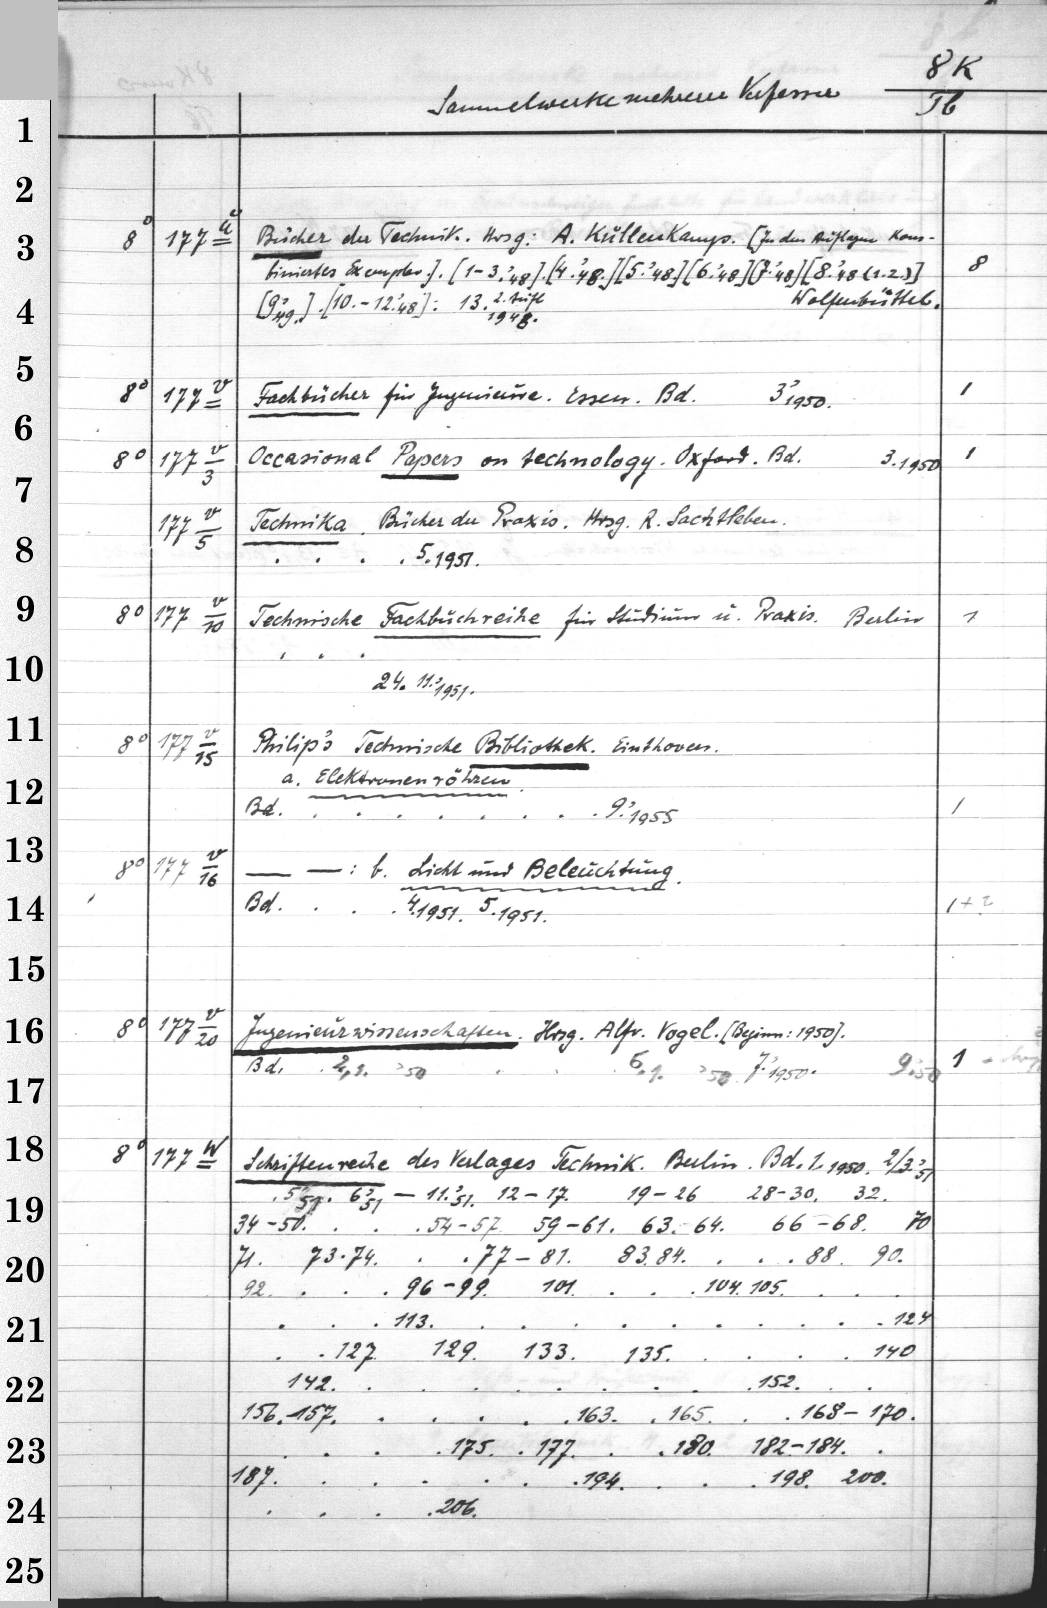 8 K
Sammelwerke mehrerer Verfasser Tb
1
2
3 8° 177 ü Bücher der Technik. Hrsg: A. Küllenkamp. [In den Auflagen kom-
biniertes Exemplar.]. [1-3.'48]. [4.'48.] [5.'48] [6.'48] [7.'48] [8.'48 (1.2.)] 8
4 [9.'49.]. [10.-12.'48]: 13. 2. Aufl 1948. Wolfenbüttel.
5 8° 177 v Fachbücher für Ingenieure. Essen. Bd. 3.'1950. 1
6 8° 177 v/3 Occasional Papers on technology. Oxford. Bd. 3.1950 1
7 177 v/5 Technika. Bücher der Praxis. Hrsg. R. Sachtleben.
8 . . . . 5.1951.
9 8° 177 v/10 Technische Fachbuchreihe für Studium u. Praxis. Berlin 1
10 . . .
24. 11.'1951.
11 8° 177 v/15 Philip's Technische Bibliothek. Einthoven.
a. Elektronenröhren.
12 Bd. . . . . . . . 9.'1955 1
13 8° 177 v/16 — — : b. Licht und Beleuchtung.
14 Bd. . . . 4.1951. 5.1951. 1+2
15
16 8° 177 v/20 Ingenieurwissenschaften. Hrsg. Alfr. Vogel. [Beginn: 1950].
Bd. . 2,1. '50 . . . 6,1. '50 7.'1950. 9.'50 1
17
18 8° 177 W Schriftenreihe des Verlages Technik. Berlin. Bd. 1. 1950. 2/3.'51
19 . 5.'51. 6.'51 — 11.'51. 12-17. 19-26 28-30. 32.
34-50. . . . 54-57. 59-61. 63.-64. 66-68. 70
20 71. 73.74. . . 77-81. 83.84. . . . 88. 90.
92. . . . 96-99. 101. . . . 104. 105. . . .
21 . . . 113. . . . . . . . . . . 124
. . 127. 129. 133. 135. . . . . 140
22 142. . . . . . . . . . 152. . .
156.-157. . . . . . 163. . 165. . . 168-170.
23 . . . . 175. . 177. . . 180. 182-184. .
187. . . . . . . 194. . . . 198. 200.
24 . . . . 206.
25